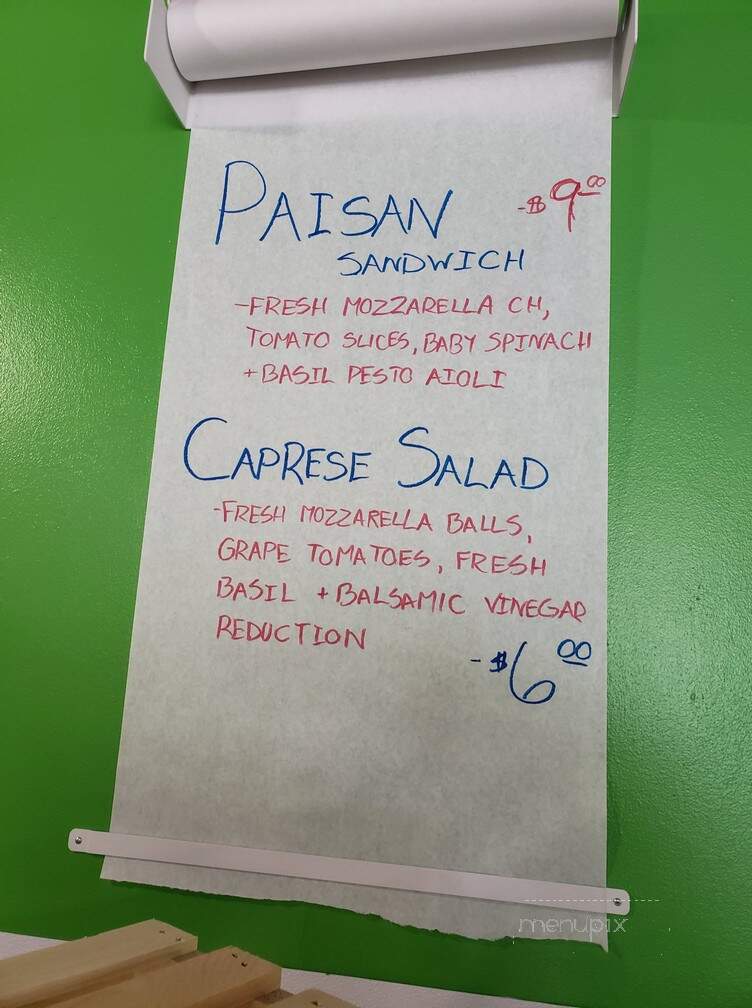 PAISAN -$9.00
SANDWICH
-FRESH MOZZARELLA CH,
TOMATO SLICES, BABY SPINACH
+ BASIL PESTO AIOLI
CAPRESE SALAD
-FRESH MOZZARELLA BALLS,
GRAPE TOMATOES, FRESH
BASIL + BALSAMIC VINEGAR
REDUCTION
- $6.00
menupix